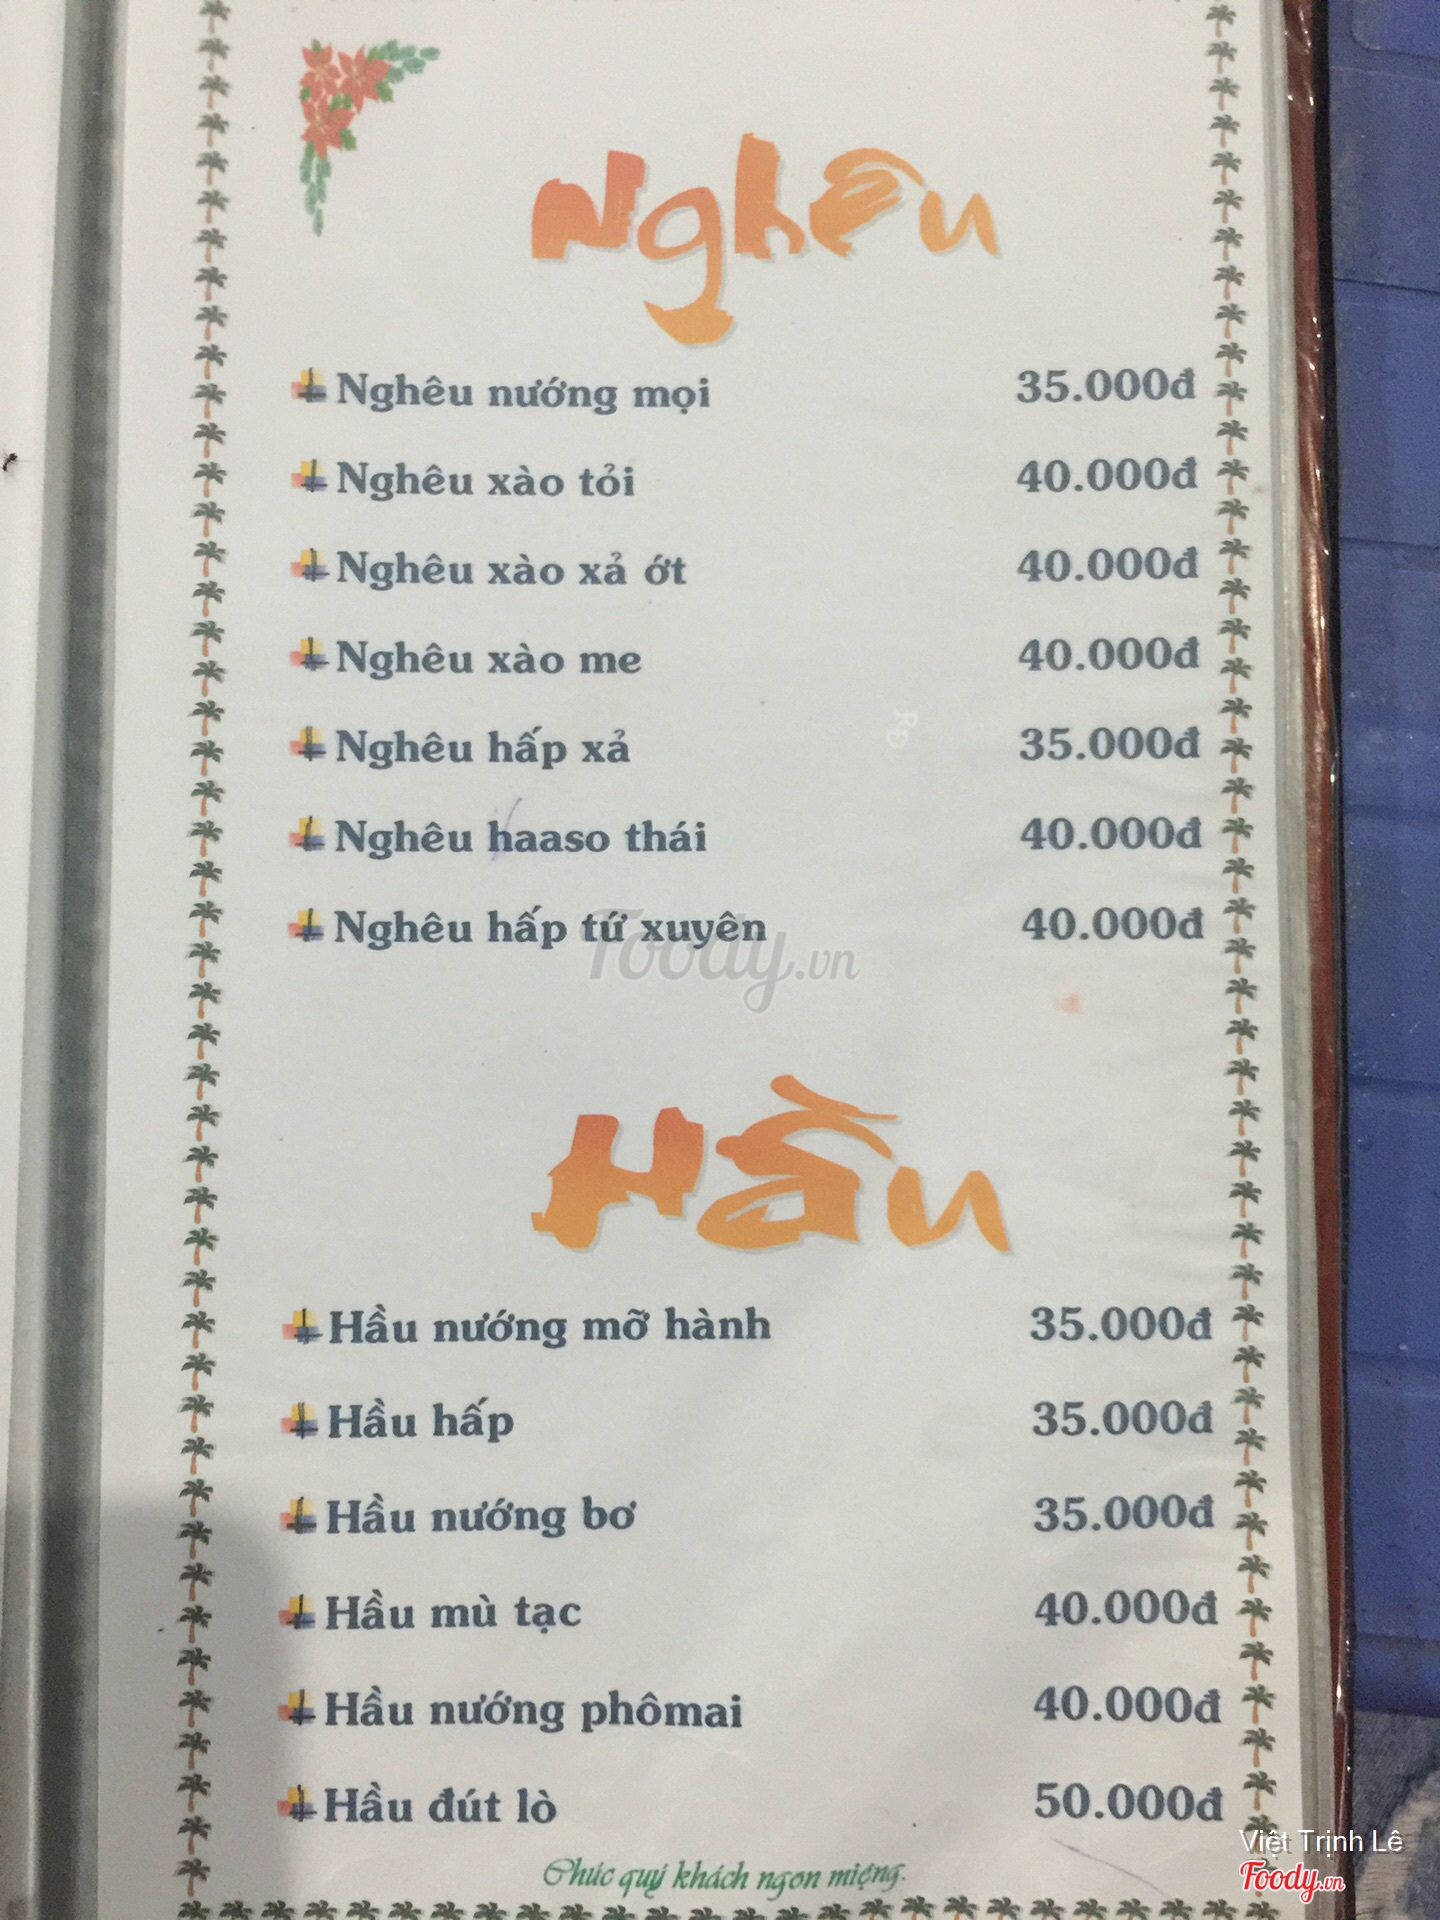 Nghêu
Nghêu nướng mọi 35.000đ
Nghêu xào tỏi 40.000đ
Nghêu xào xả ớt 40.000đ
Nghêu xào me 40.000đ
Nghêu hấp xả 35.000đ
Nghêu haaso thái 40.000đ
Nghêu hấp tứ xuyên 40.000đ
Foody.vn
Hầu
Hầu nướng mỡ hành 35.000đ
Hầu hấp 35.000đ
Hầu nướng bơ 35.000đ
Hầu mù tạc 40.000đ
Hầu nướng phômai 40.000đ
Hầu đút lò 50.000đ
Chúc quý khách ngon miệng.
Việt Trịnh Lê
Foody.vn